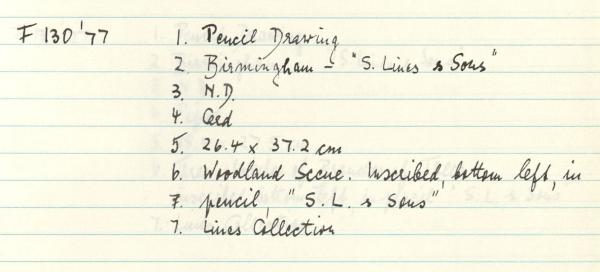 F 130'77 1. Pencil Drawing
2. Birmingham - "S. Lines & Sons"
3. N.D.
4. Ced
5. 26.4 x 37.2 cm
6. Woodland Scene. Inscribed, bottom left, in
7. pencil, "S.L. & Sons"
7. Lines Collection